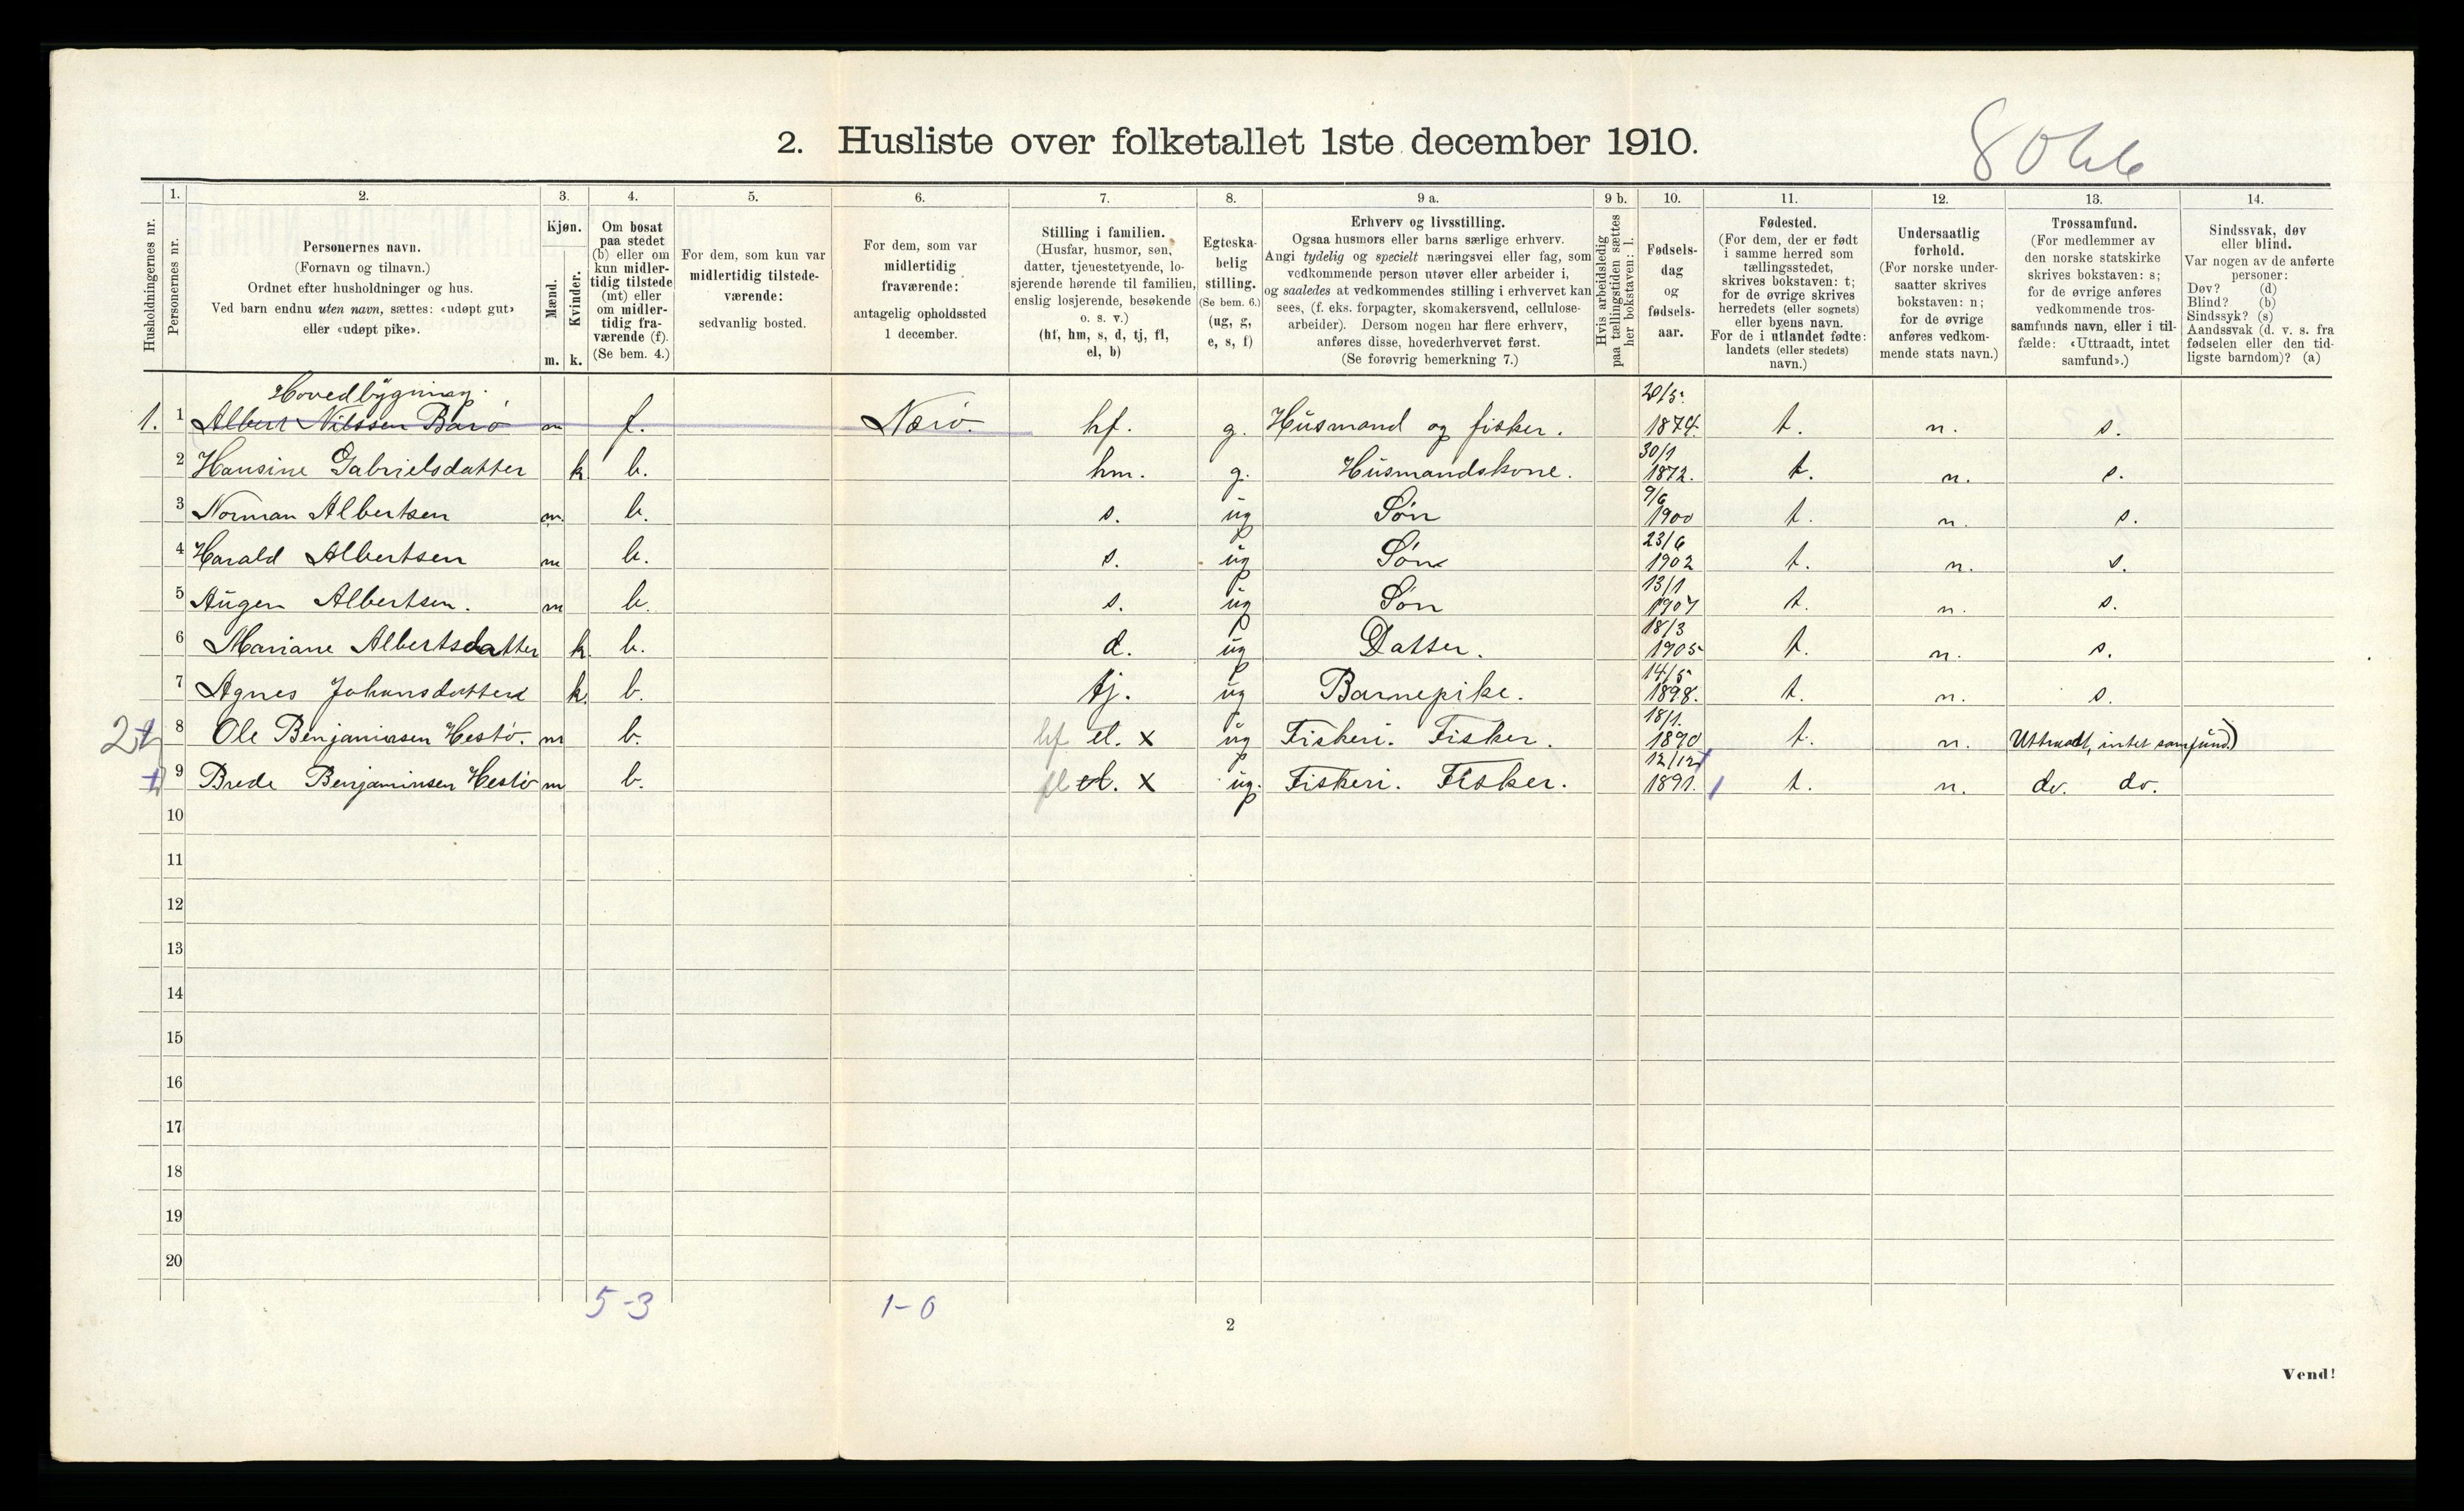 2. Husliste over folketallet 1ste december 1910.
Husholdningernes nr.
1.
Personernes nr.
2.
Personernes navn.
(Fornavn og tilnavn.)
Ordnet efter husholdninger og hus.
Ved barn endnu uten navn, sættes: «udøpt gut»
eller «udøpt pike».
3.
Kjøn.
Mænd.
Kvinder.
m. k.
4.
Om bosat
paa stedet
(b) eller om
kun midler-
tidig tilstede
(mt) eller
om midler-
tidig fra-
værende (f).
(Se bem. 4.)
5.
For dem, som kun var
midlertidig tilstede-
værende:
sedvanlig bosted.
6.
For dem, som var
midlertidig
fraværende:
antagelig opholdssted
1 december.
7.
Stilling i familien.
(Husfar, husmor, søn,
datter, tjenestetyende, lo-
sjerende hørende til familien,
enslig losjerende, besøkende
o. s. v.)
(hf, hm, s, d, tj, fl,
el, b)
8.
Egteska-
belig
stilling.
(Se bem. 6.)
(ug, g,
e, s, f)
9 a.
Erhverv og livsstilling.
Ogsaa husmors eller barns særlige erhverv.
Angi tydelig og specielt næringsvei eller fag, som
vedkommende person utøver eller arbeider i,
og saaledes at vedkommendes stilling i erhvervet kan
sees, (f. eks. forpagter, skomakersvend, cellulose-
arbeider). Dersom nogen har flere erhverv,
anføres disse, hovederhvervet først.
(Se forøvrig bemerkning 7.)
9 b.
Hvis arbeidsledig
paa tællingstiden sættes
her bokstaven: l.
10.
Fødsels-
dag
og
fødsels-
aar.
11.
Fødested.
(For dem, der er født
i samme herred som
tællingsstedet,
skrives bokstaven: t;
for de øvrige skrives
herredets (eller sognets)
eller byens navn.
For de i utlandet fødte:
landets (eller stedets)
navn.)
12.
Undersaatlig
forhold.
(For norske under-
saatter skrives
bokstaven: n;
for de øvrige
anføres vedkom-
mende stats navn.)
13.
Trossamfund.
(For medlemmer av
den norske statskirke
skrives bokstaven: s;
for de øvrige anføres
vedkommende tros-
samfunds navn, eller i til-
fælde: «Uttraadt, intet
samfund».)
14.
Sindssvak, døv
eller blind.
Var nogen av de anførte
personer:
Døv? (d)
Blind? (b)
Sindssyk? (s)
Aandssvak (d. v. s. fra
fødselen eller den tid-
ligste barndom)? (a)
Hovedbygning.
1. 1 Albert Nilssen Barø m f. Nærø. hf. g. Husmand og fisker. 20/5. 1874. t. n. s.
2 Hansine Gabrielsdatter k b. hm. g. Husmandskone. 30/1 1872. t. n. s.
3 Norman Albertsen m. b. s. ug Søn 9/6 1900 t. n. s.
4 Harald Albertsen m b. s. ug Søn 23/6 1902 t. n. s.
5 Augen Albertsen. m b. s. ug Søn 13/1 1907 t. n. s.
6 Mariane Albertsdatter k. b. d. ug Datter. 18/3 1905 t. n. s.
7 Agnes Johansdatter k. b. tj. ug Barnepike. 14/5 1898. t. n. s.
2 8 Ole Benjaminsen Hestø. m b. hf el. x ug Fiskeri. Fisker. 18/1. 1890 t. n. Uttraadt, intet samfund.)
9 Brede Benjaminsen Hestø m b. fl el. x ug. Fiskeri. Fisker. 12/12 1891. t. n. do. do.
10
11
12
13
14
15
16
17
18
19
20
5-3 1-0
2
Vend!